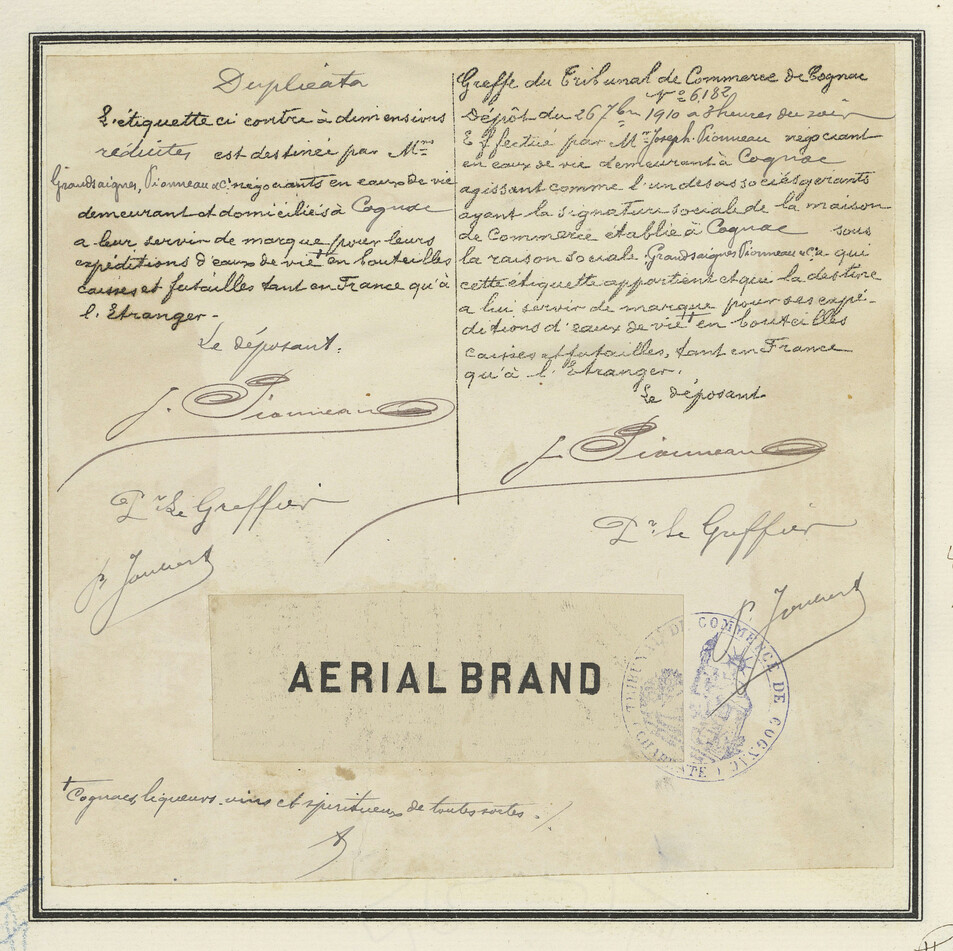 Duplicata
L'étiquette ci contre à dimensions
réduites est destinée par Mrs
Grandsaignes, Pionneau & Cie négociants en eaux de vie
demeurant et domiciliés à Cognac
a leur servir de marque pour leurs
expéditions d'eaux de vie + en bouteilles
caisses et futailles tant en France qu'à
l'Etranger.-
Le déposant.
J. Pionneau
Pr Le Greffier
P. Joubert
Greffe du Tribunal de Commerce de Cognac
No 6,182
Dépôt du 26 7bre 1910 a 3 heures du soir
Effectué par Mr Joseph Pionneau négociant
en eaux de vie demeurant à Cognac
agissant comme l'un des associés gérants
ayant la signature sociale de la maison
de Commerce établie à Cognac sous
la raison sociale Grandsaignes Pionneau & Cie qui
cette étiquette appartient et qui la destine
a lui servir de marque pour ses expé-
ditions d'eaux de vie + en bouteilles
caisses et futailles, tant en France
qu'à l'Etranger.
Le déposant
J. Pionneau
Pr Le Greffier
P. Joubert
AERIAL BRAND
TRIBUNAL DE COMMERCE DE COGNAC
(CHARENTE)
+ Cognacs, liqueurs, vins et spiritueux de toutes sortes ./.